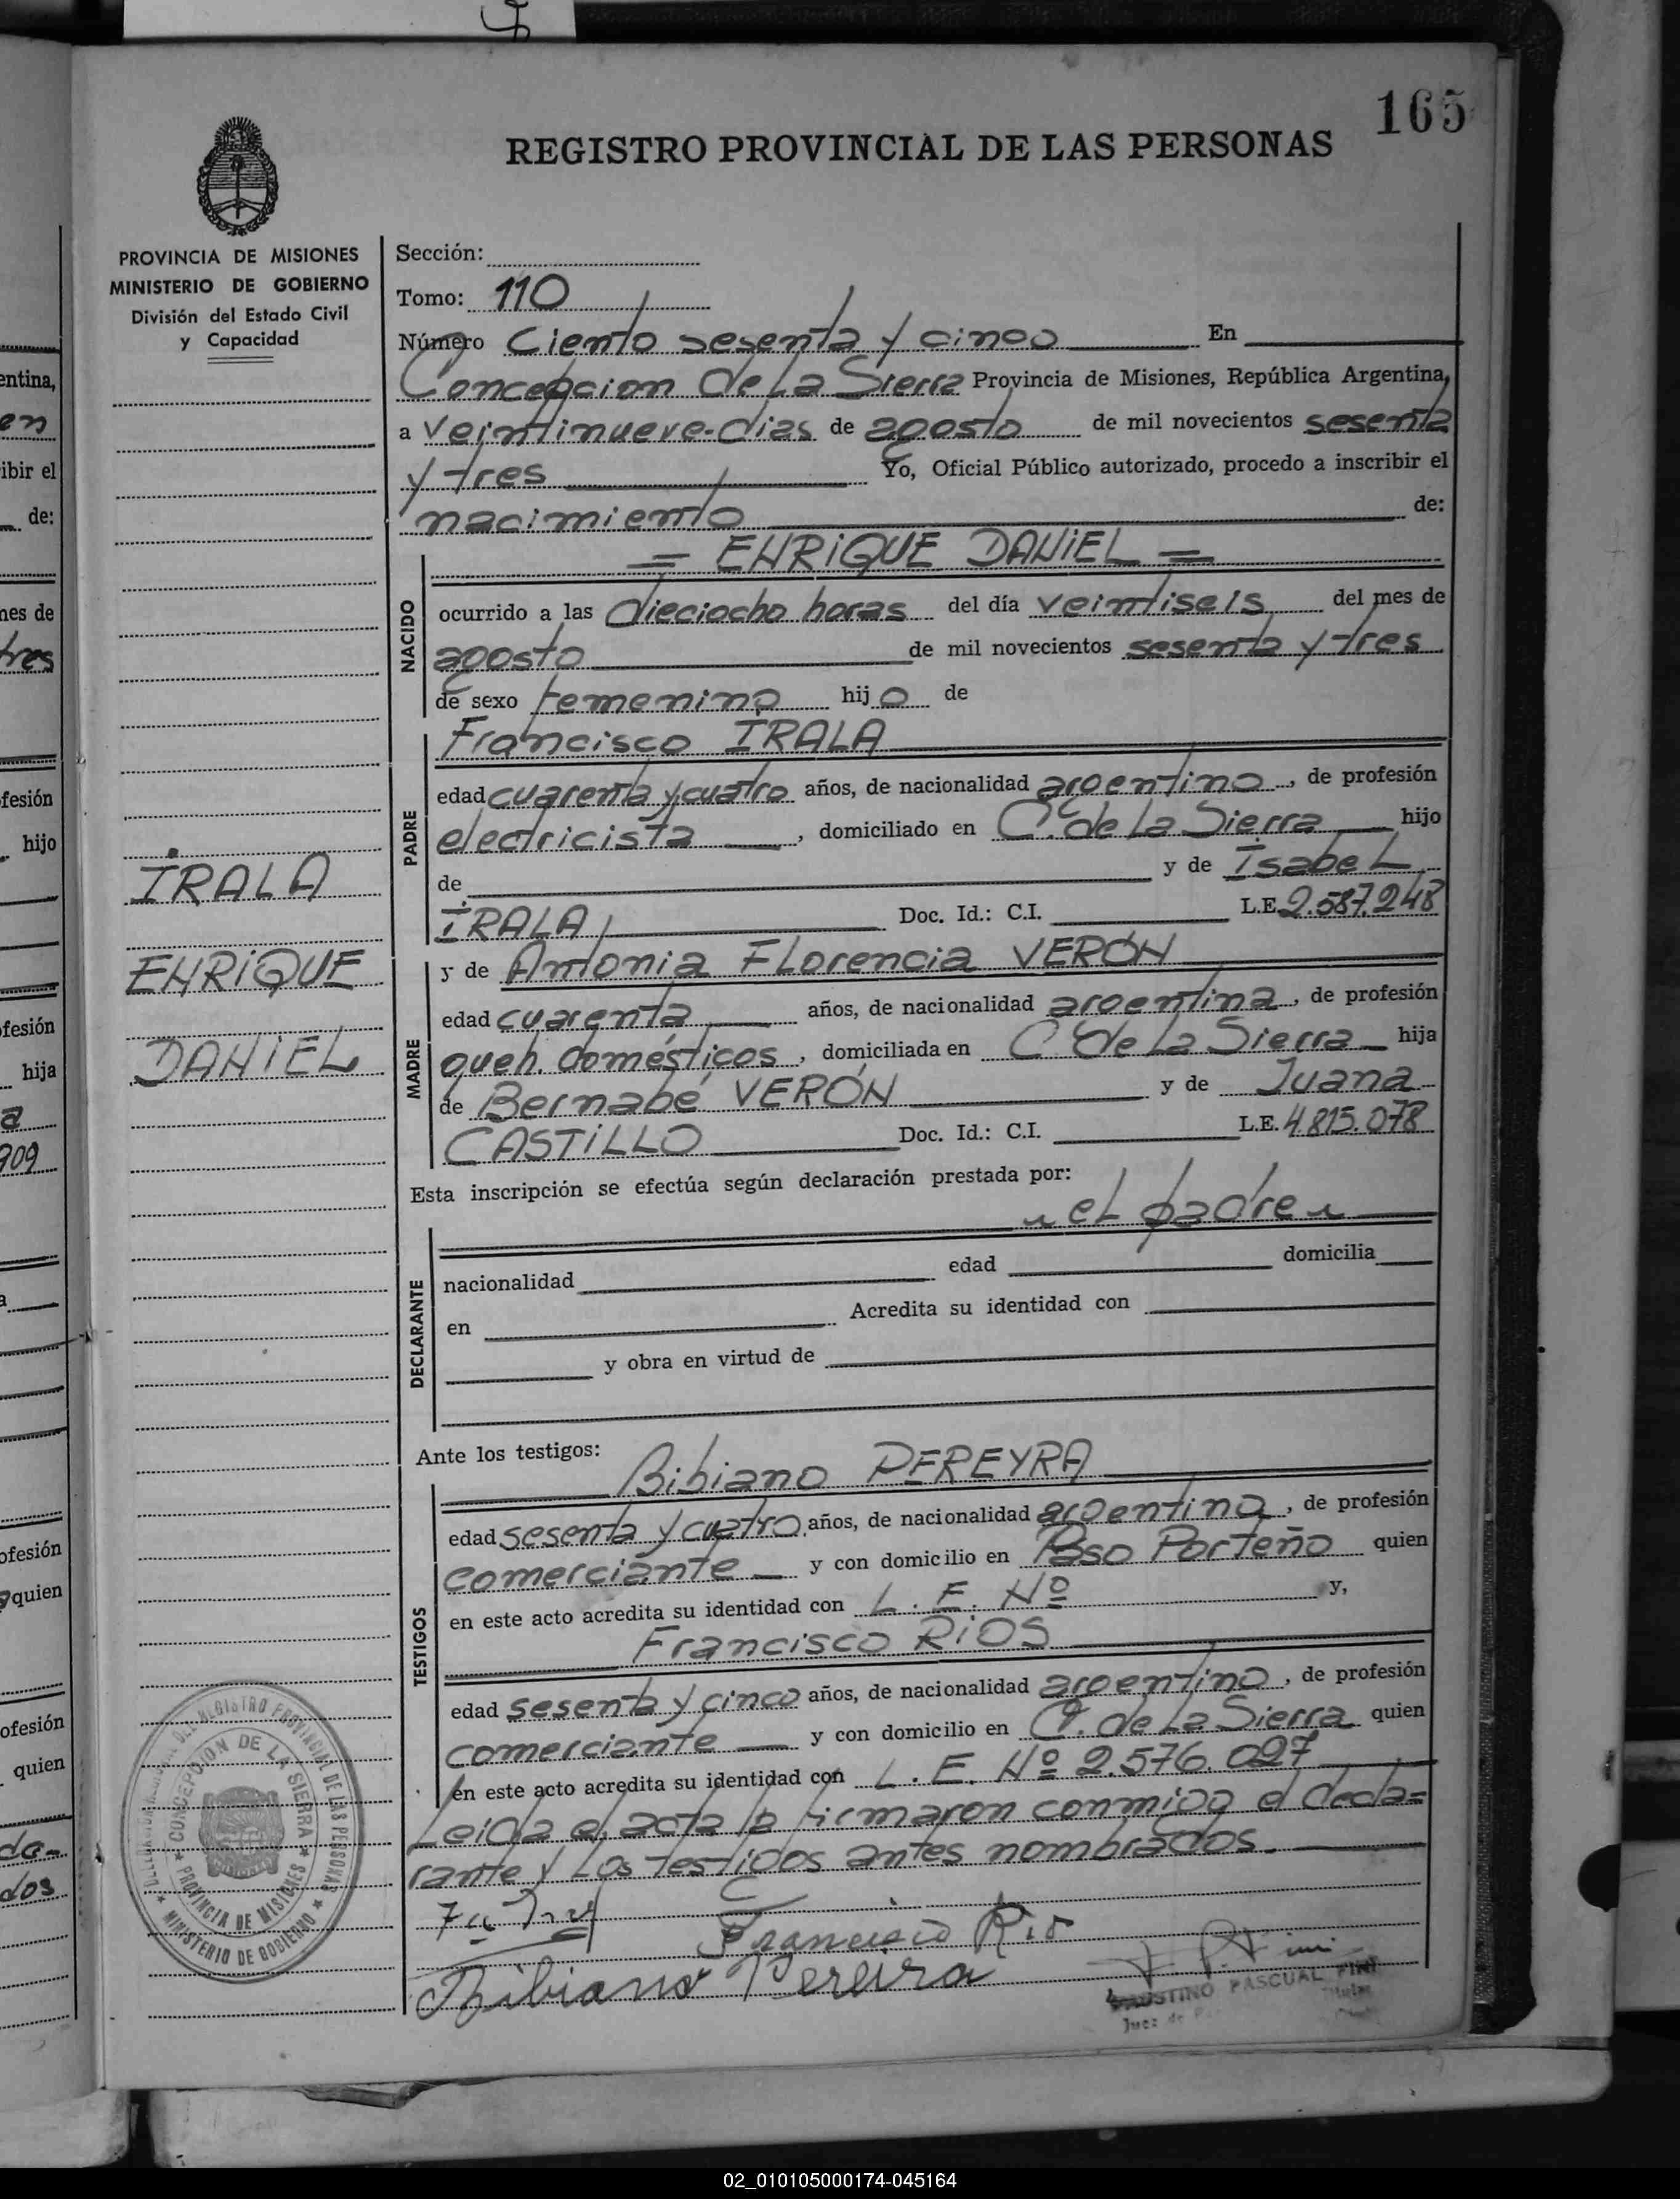 165
REGISTRO PROVINCIAL DE LAS PERSONAS
PROVINCIA DE MISIONES
MINISTERIO DE GOBIERNO
División del Estado Civil
y Capacidad
Sección:
Tomo: 110
Número Ciento sesenta y cinco En
Concepcion De La Sierra Provincia de Misiones, República Argentina,
a veintinueve-dias de agosto de mil novecientos sesenta
y tres Yo, Oficial Público autorizado, procedo a inscribir el
nacimiento de:
= ENRiQUE DANiEL =
NACIDO
ocurrido a las dieciocho horas del día veintiseis del mes de
agosto de mil novecientos sesenta y tres
de sexo femenino hijo de
Francisco IRALA
PADRE
edad cuarenta y cuatro años, de nacionalidad argentino, de profesión
electricista, domiciliado en C. de La Sierra hijo
de y de IsabeL
IRALA Doc. Id.: C.I. L.E. 2.587.248
IRALA
ENRiQUE
DANiEL
MADRE
y de Antonia FLorencia VERÓN
edad cuarenta años, de nacionalidad argentina, de profesión
queh. domésticos, domiciliada en C. De La Sierra hija
de Bernabé VERÓN y de Juana
CASTiLLO Doc. Id.: C.I. L.E. 4.815.078
Esta inscripción se efectúa según declaración prestada por:
eL padre
DECLARANTE
nacionalidad edad domicilia
en Acredita su identidad con
y obra en virtud de
Ante los testigos: Bibiano PEREYRA
TESTIGOS
edad sesenta y cuatro años, de nacionalidad argentino, de profesión
comerciante y con domicilio en Paso Porteño quien
en este acto acredita su identidad con L. E. Nº y,
Francisco RiOS
edad sesenta y cinco años, de nacionalidad argentino, de profesión
comerciante y con domicilio en C. de La Sierra quien
en este acto acredita su identidad con L. E. Nº 2.576.027
Leida el acta la firmaron conmigo el decla=
rante y Los testigos antes nombrados.
Francisco Rio
Bibiano Pereira
FAUSTINO PASCUAL PINI
Juez de
REGISTRO PROVINCIAL DE LAS PERSONAS
MINISTERIO DE GOBIERNO
CONCEPCION DE LA SIERRA
PROVINCIA DE MISIONES
entina,
en
ibir el
de:
nes de
tres
fesión
hijo
fesión
hija
a
909
ofesión
quien
ofesión
quien
da-
dos
02_010105000174-045164